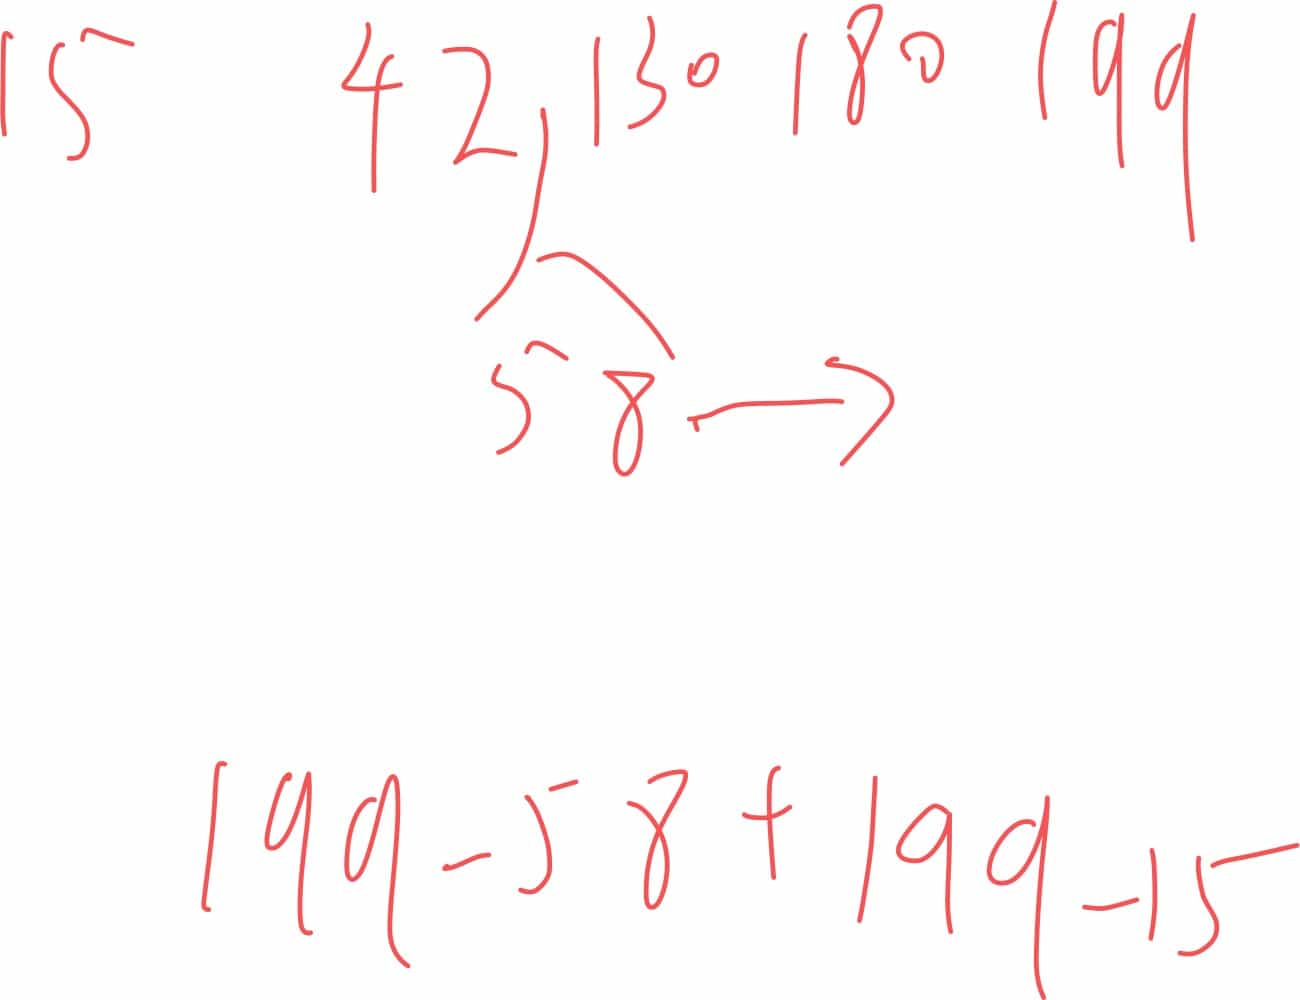 15 42, 130 180 199
58 →
199-58+199-15